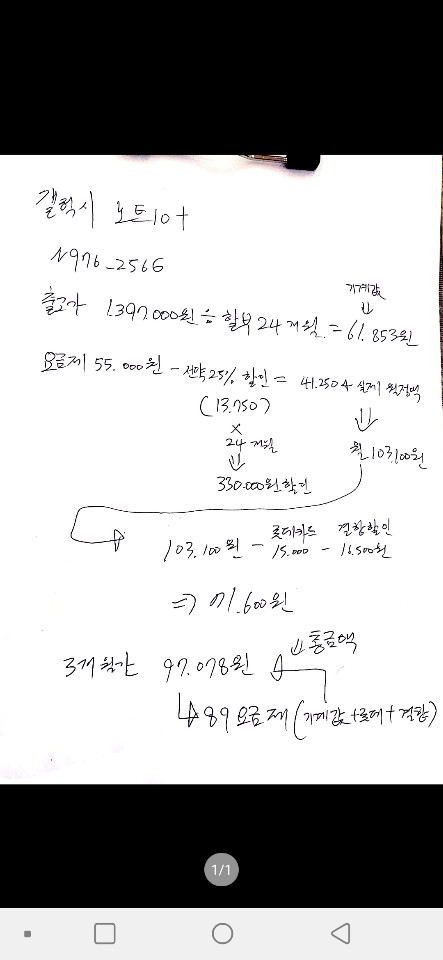 갤럭시 노트10+
N976_256G
기계값
출고가 1.397.000원 ÷ 할부 24개월 = 61.853원
요금제 55.000원 - 선약 25% 할인 = 41.250 실제 월정액
(13.750)
×
24개월
월 103.100원
330.000원 할인
롯데카드 결합할인
103.100원 - 15.000 - 16.500원
⇒ 71.600원
총금액
3개월간 97.078원
89요금제 (기계값+롯데+결합)
1/1